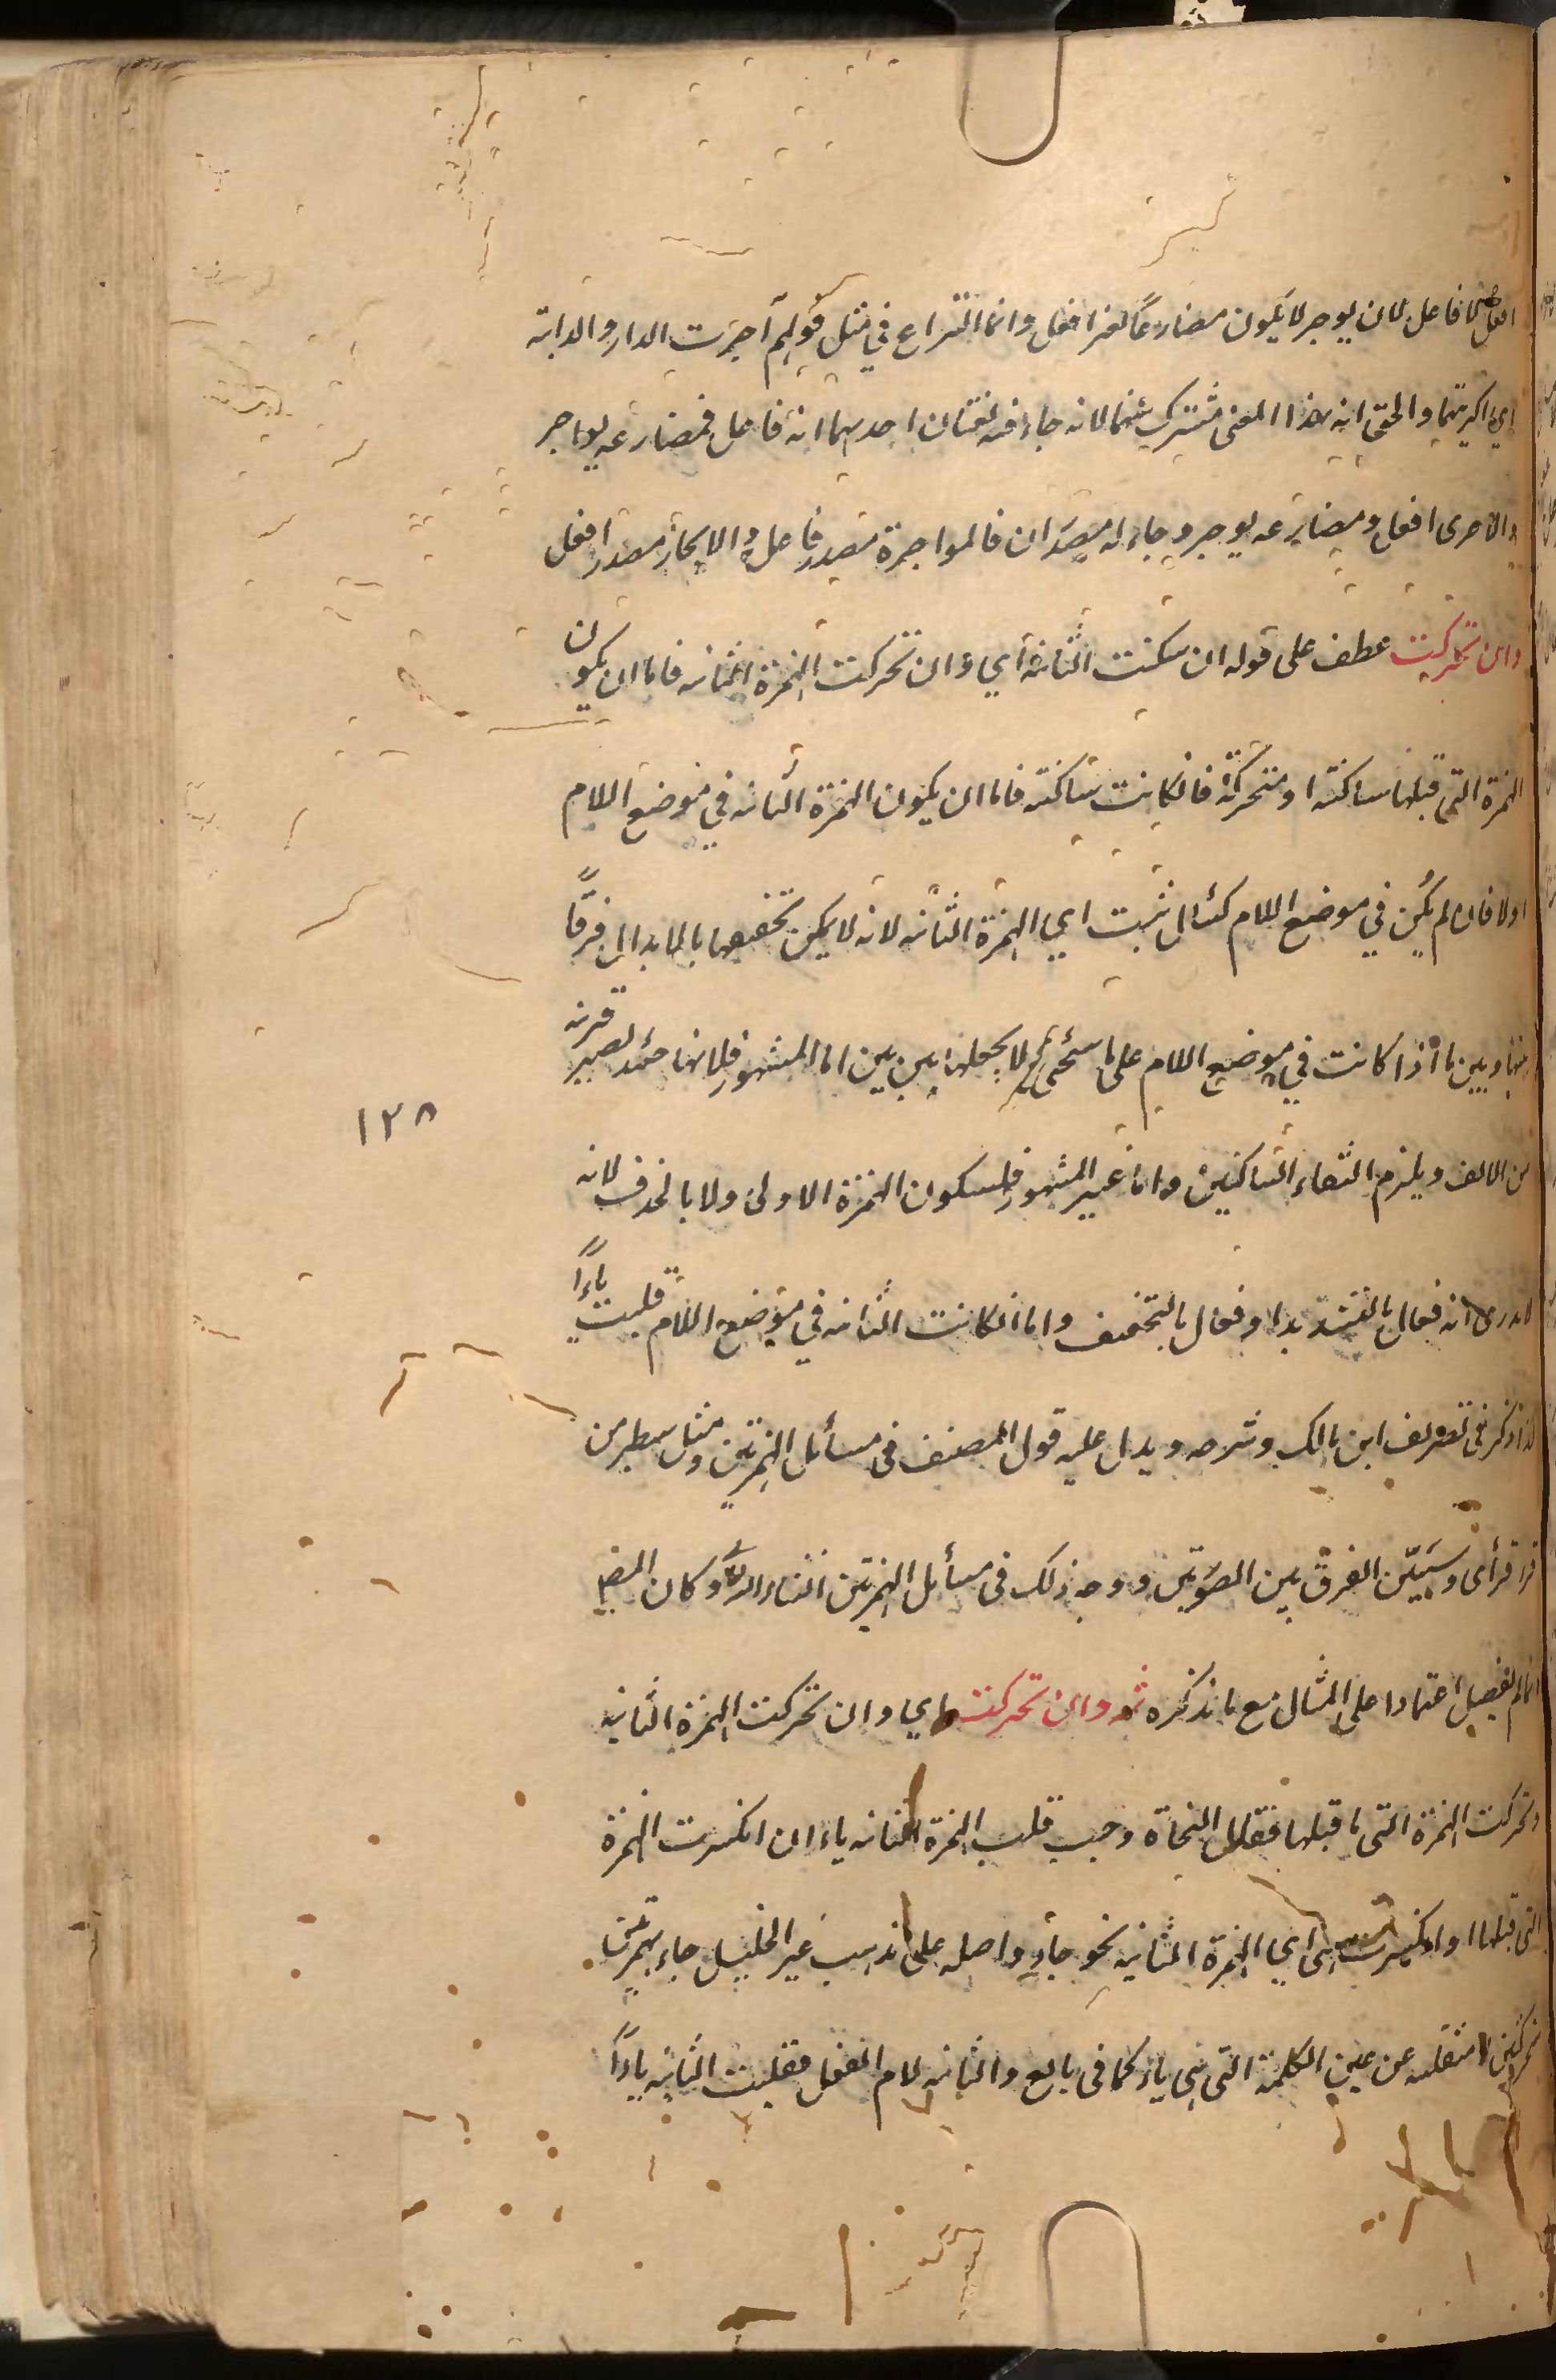 افعل لا فاعل لان يوجر لا يكون مضارعًا لغير افعل وانما النزاع في مثل قولهم آجرت الدار والدابة
اي اكريتها والحق انه بهذا المعنى مشترك بينهما لانه جاء فيه لغتان احديهما انه فاعل فمضارعه يواجر
والاخرى افعل ومضارعه يوجر وجاء له مصدران فالمواجرة مصدر فاعل والايجار مصدر افعل
وان تحركت عطف على قوله ان سكنت الثانية اي وان تحركت الهمزة الثانية فاما ان يكون
الهمزة التي قبلها ساكنة او متحركة فان كانت ساكنة فاما ان يكون الهمزة الثانية في موضع اللام
اولا فان لم يكن في موضع اللام كسأال ثبت اي الهمزة الثانية لانه لا يمكن تخفيفها بالابدال فرقًا
بينها وبين ما اذا كانت في موضع اللام على ما سيجئ ولا بجعلها بين بين اما المشهور فلانها حينئذ تصير قريبة
من الالف ويلزم التقاء الساكنين واما غير المشهور فلسكون الهمزة الاولى ولا بالحذف لانه
١٢٨
لم يدر انه فعال بالتشديد او فعال بالتخفيف واما ان كانت الثانية في موضع اللام قلبت ياءًا
كذا ذكر في تصريف ابن مالك وشرحه ويدل عليه قول المصنف في مسائل التمرين ومثل سبطر من
قرأ قرأى وسيبيّن الفرق بين الصورتين ووجه ذلك في مسائل التمرين ان شاء الله وكان المص
انما لم يفصل اعتمادا على المثال مع ما نذكره ثمه وان تحركت اي وان تحركت الهمزة الثانية
وتحركت الهمزة التي ما قبلها فقال النحاة وجب قلب الهمزة الثانية ياء ان انكسرت الهمزة
التي قبلها او انكسرت هي اي الهمزة الثانية نحو جاء واصله على مذهب غير الخليل جاءء بهمزتين
متحركتين منقلبة عن عين الكلمة التي هي ياء كما في بائع والثانية لام الفعل فقلبت الثانية ياءًا